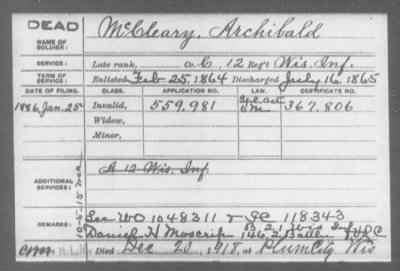 DEAD
NAME OF SOLDIER: McCleary, Archibald
SERVICE: Late rank, Co. C, 12 Reg't Wis. Inf.
TERM OF SERVICE: Enlisted Feb 25, 1864 Discharged July 16, 1865
DATE OF FILING. CLASS. APPLICATION NO. LAW. CERTIFICATE NO.
1886, Jan. 25 Invalid, 559,981 367,806
Widow,
Minor,
ADDITIONAL SERVICES: A 12 Wis. Inf.
10-5-15
REMARKS: See WO 1048311 & IC 118343
Daniel H
Died Dec 20, 1918, at Plum City Wis